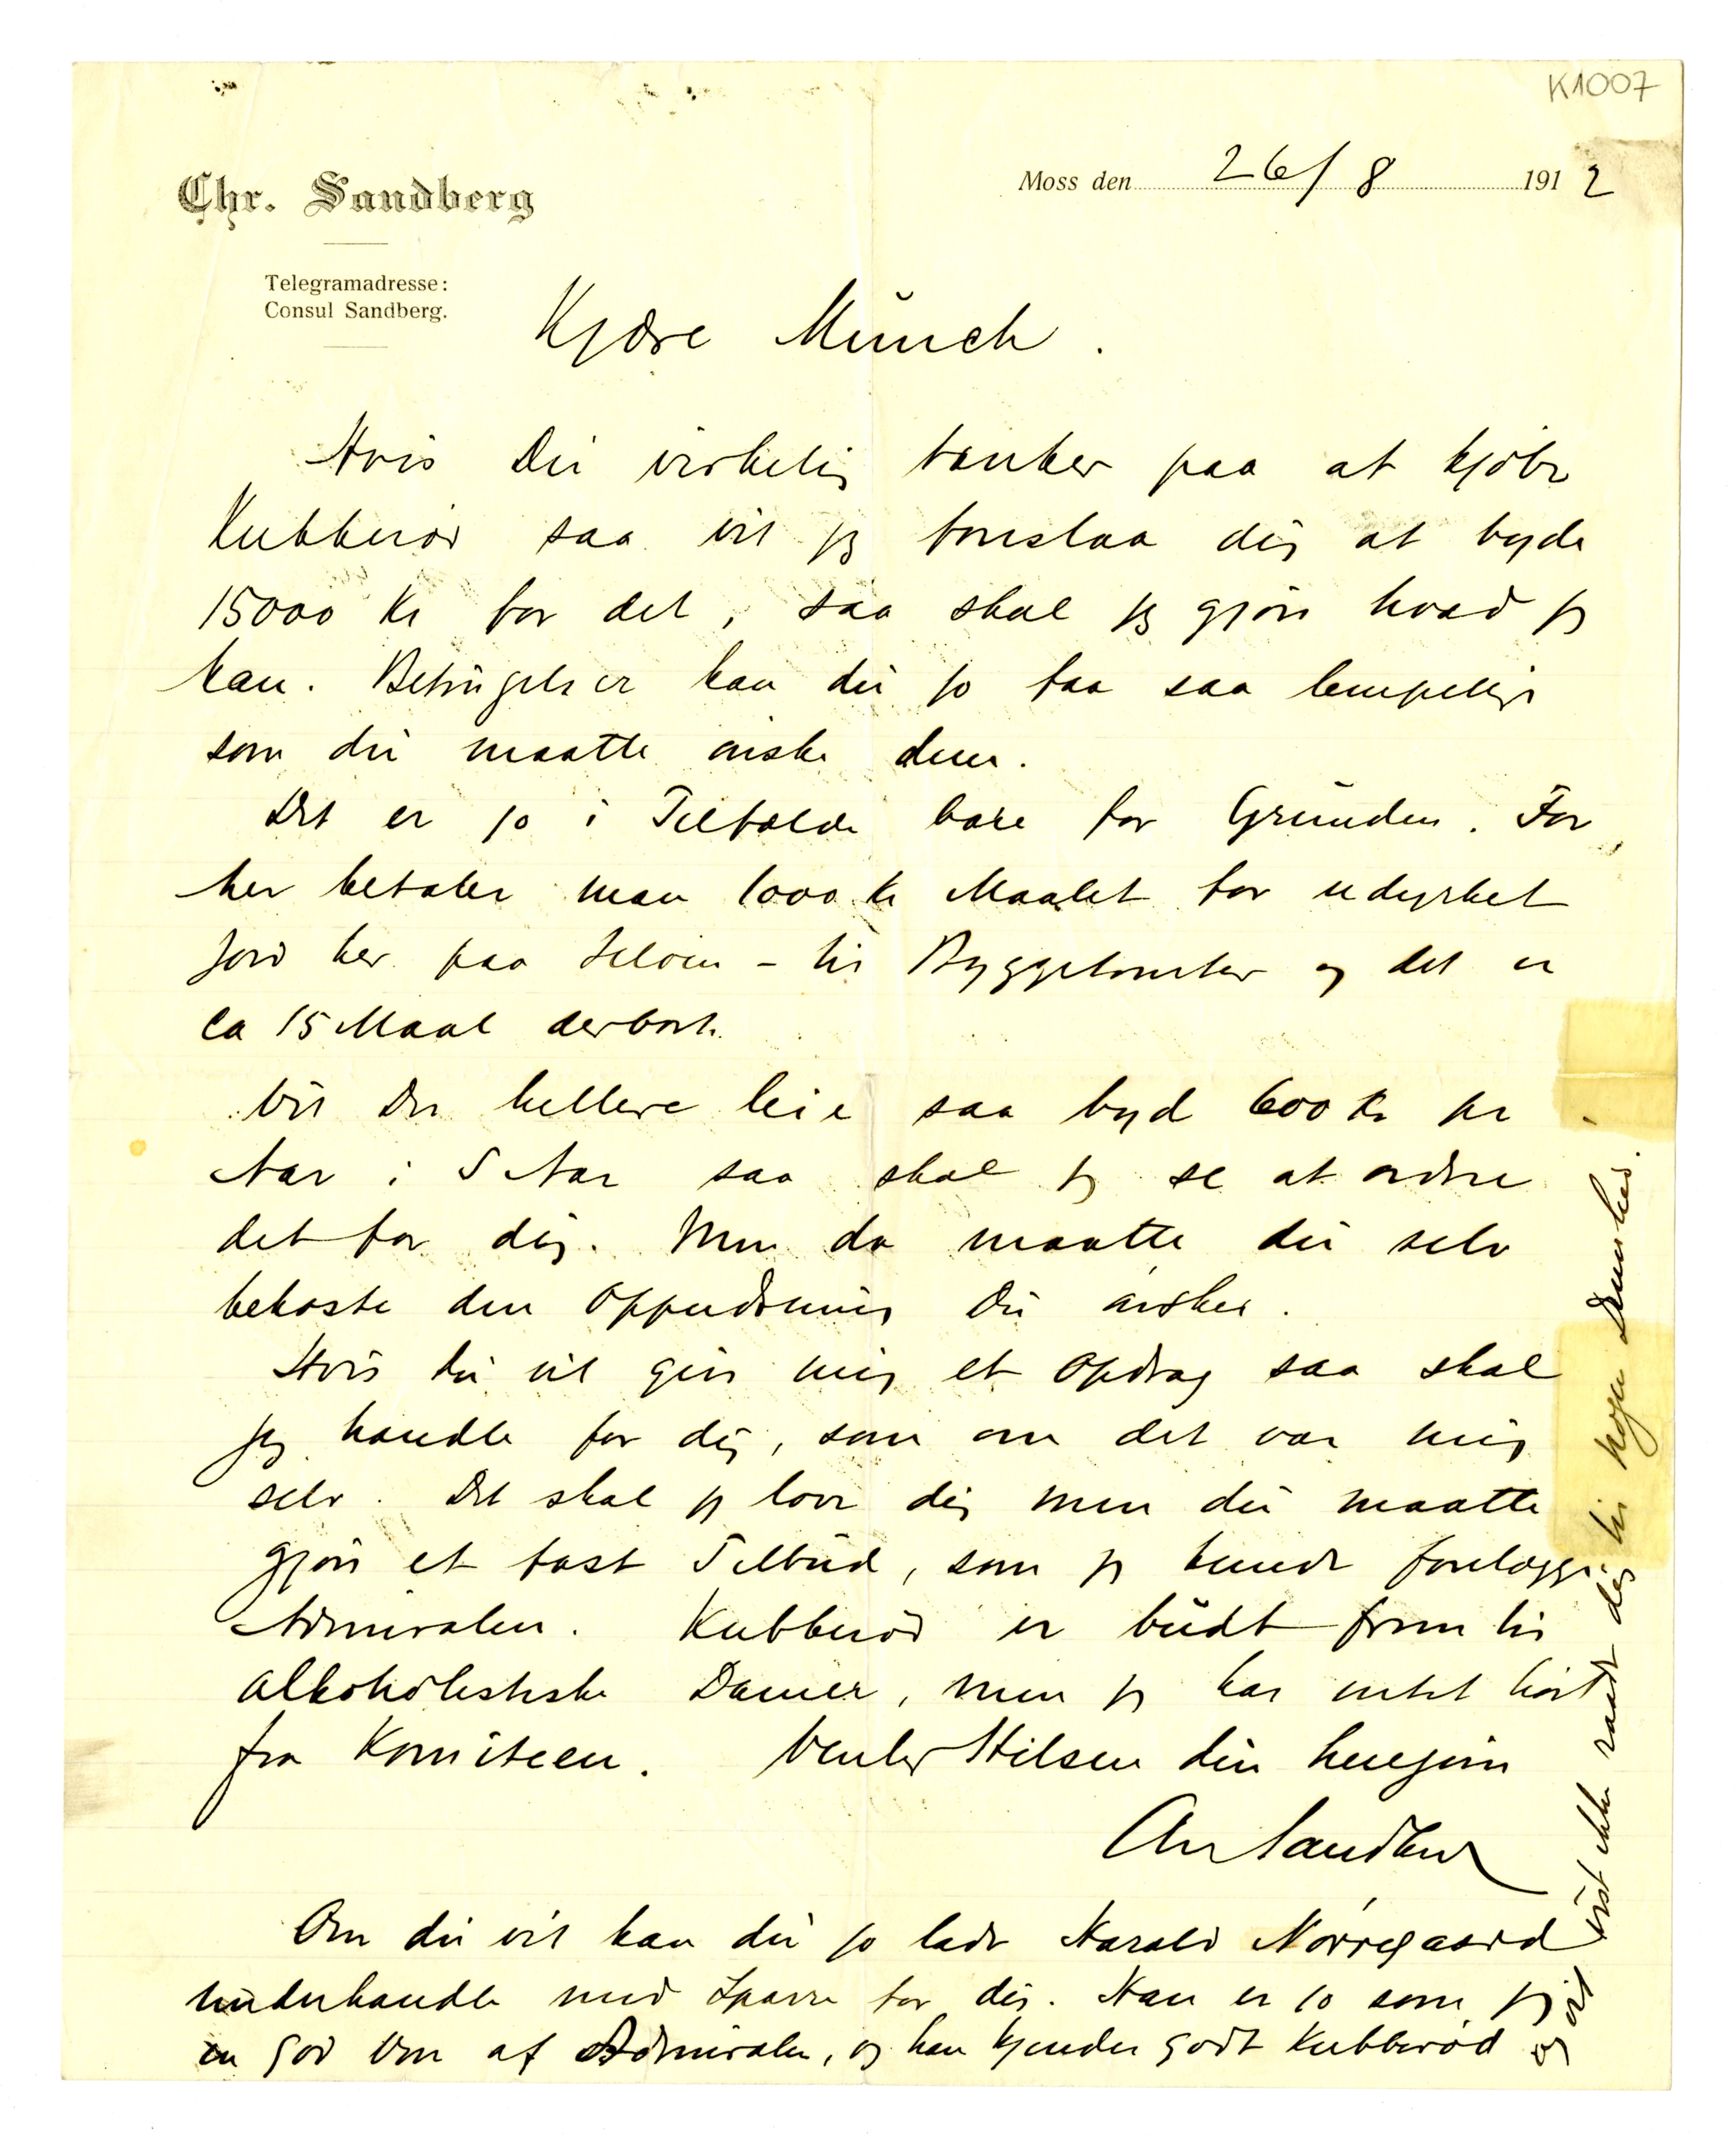 K1007
Chr. Sandberg
Moss den 26/8 1912
Telegramadresse:
Consul Sandberg.
Kjære Munch.
Hvis Du virkelig tænker paa at kjøbe
Kubberød saa vil jeg foreslaa dig at byde
15000 Kr for det, saa skal jeg gjøre hvad jeg
kan. Betingelser kan du jo faa saa lempelige
som du maatte ønske dem.
Det er jo i Tilfælde bare for Grunden. For
her betaler man 1000 kr Maalet for udyrket
Jord her paa Jeløen – til Byggetomter og det er
ca 15 Maal derborte.
Vil Du hellere leie saa byd 600 Kr pr
Aar i 5 Aar saa skal jeg se at ordne
det for dig. Men da maatte du selv
bekoste den Oppudsning Du ønsker.
Hvis Du vil give mig et Opdrag saa skal
jeg handle for dig, som om det var mig
selv. Det skal jeg love dig men du maatte
gjøre et fast Tilbud, som jeg kunde forelægge
Admiralen. Kubberød er budt frem til
alkoholistiske Damer, men jeg har intet hørt
fra Komiteen. Venlig Hilsen din hengivne
Chr Sandberg
Om du vil kan du jo lade Harald Nørregaard
underhandle med Sparre for dig. Han er jo som jeg
en god Ven af Admiralen, og han kjender godt Kubberød
og vil vist ikke raade dig til nogen Dumhed.